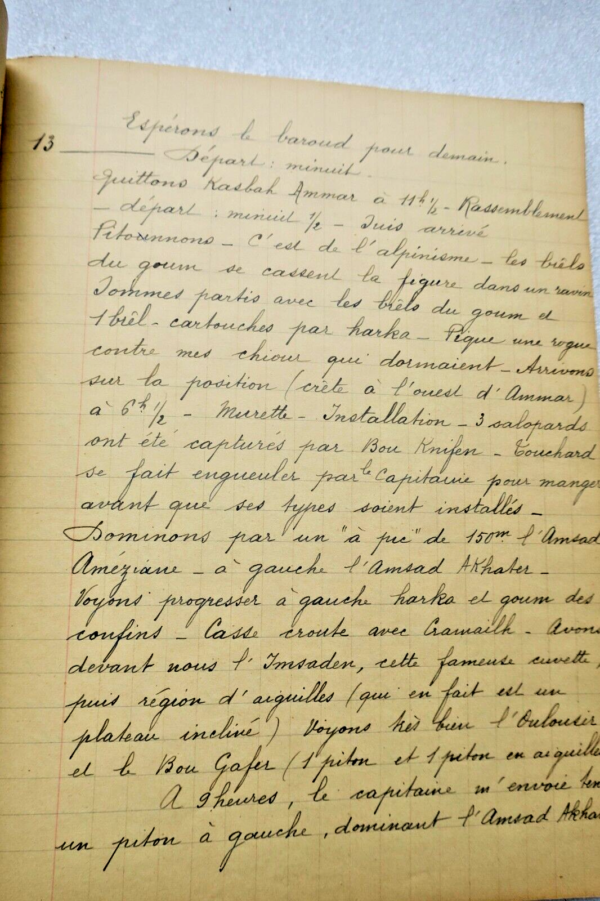 Espérons le baroud pour demain.
13 Départ : minuit.
Quittons Kasbah Ammar à 11h ½ - Rassemblement
- départ : minuit ½ - Suis arrivé
Pitonnons - C'est de l'alpinisme - les brêls
du goum se cassent la figure dans un ravin
Sommes partis avec les brêls du goum et
1 brêl - cartouches par harka - Pique une rogne
contre mes chiour qui dormaient - Arrivons
sur la position (crête à l'ouest d'Ammar)
à 6h ½ - Murette - Installation - 3 salopards
ont été capturés par Bou Knifen - Touchard
se fait engueuler par le Capitaine pour manger
avant que ses types soient installés -
Dominons par un "à pic" de 150m l'Amsad
Améziane - à gauche l'Amsad AKhater -
Voyons progresser à gauche harka et goum des
confins - Casse croute avec Cramailh - Avons
devant nous l'Imsaden, cette fameuse cuvette,
puis région d'aiguilles (qui en fait est un
plateau incliné) Voyons très bien l'Oulousir
et le Bou Gafer (1 piton et 1 piton en aiguille
A 9 heures, le capitaine m'envoie
un piton à gauche, dominant l'Amsad